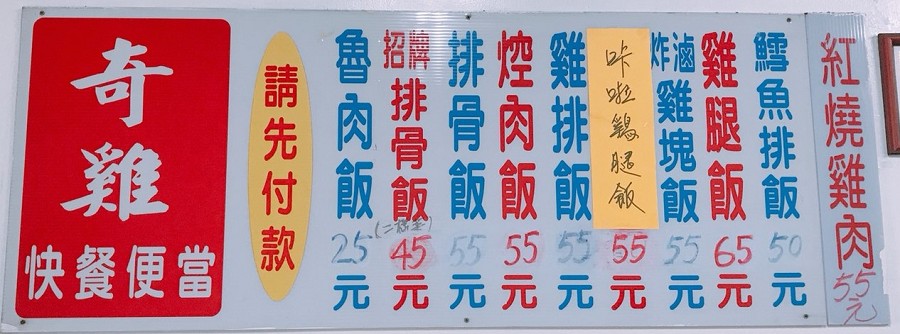 奇雞
快餐便當
請先付款
魯肉飯25元
招牌排骨飯(二樣菜)45元
排骨飯55元
焢肉飯55元
雞排飯55元
咔啦鷄腿飯55元
炸滷雞塊飯55元
雞腿飯65元
鱈魚排飯50元
紅燒雞肉55元